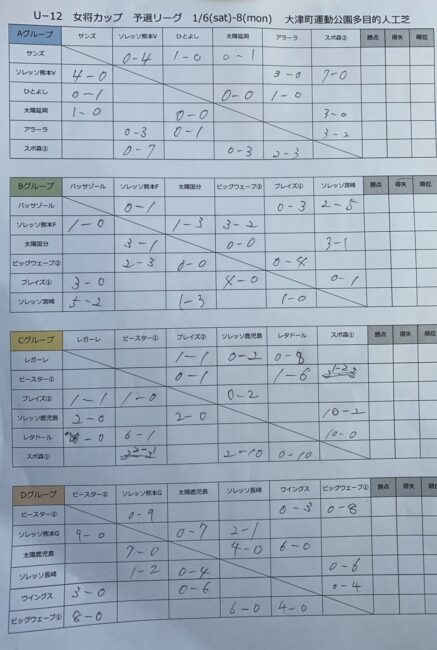 U−12 女将カップ 予選リーグ 1/6(sat)-8(mon) 大津町運動公園多目的人工芝
Aグループ サンズ ソレッソ熊本V ひとよし 太陽延岡 アラーラ スポ森② 勝点 得失 順位
サンズ 0-4 1-0 0-1
ソレッソ熊本V 4-0 3-0 7-0
ひとよし 0-1 0-0 1-0
太陽延岡 1-0 0-0 3-0
アラーラ 0-3 0-1 3-2
スポ森② 0-7 0-3 2-3
Bグループ バッサゾール ソレッソ熊本F 太陽国分 ビッグウェーブ② ブレイズ① ソレッソ宮崎 勝点 得失 順位
バッサゾール 0-1 0-3 2-5
ソレッソ熊本F 1-0 1-3 3-2
太陽国分 3-1 0-0 3-1
ビッグウェーブ② 2-3 0-0 0-4
ブレイズ① 3-0 4-0 0-1
ソレッソ宮崎 5-2 1-3 1-0
Cグループ レガーレ ビースター① ブレイズ② ソレッソ鹿児島 レタドール スポ森① 勝点 得失 順位
レガーレ 1-1 0-2 0-8
ビースター① 0-1 1-6
ブレイズ② 1-1 1-0 0-2
ソレッソ鹿児島 2-0 2-0 10-2
レタドール 8-0 6-1 10-0
スポ森① 2-10 0-10
Dグループ ビースター② ソレッソ熊本G 太陽鹿児島 ソレッソ長崎 ウイングス ビッグウェーブ① 勝点 得失 順位
ビースター② 0-9 0-3 0-8
ソレッソ熊本G 9-0 0-7 2-1
太陽鹿児島 7-0 4-0 6-0
ソレッソ長崎 1-2 0-4 0-6
ウイングス 3-0 0-6 0-4
ビッグウェーブ① 8-0 6-0 4-0